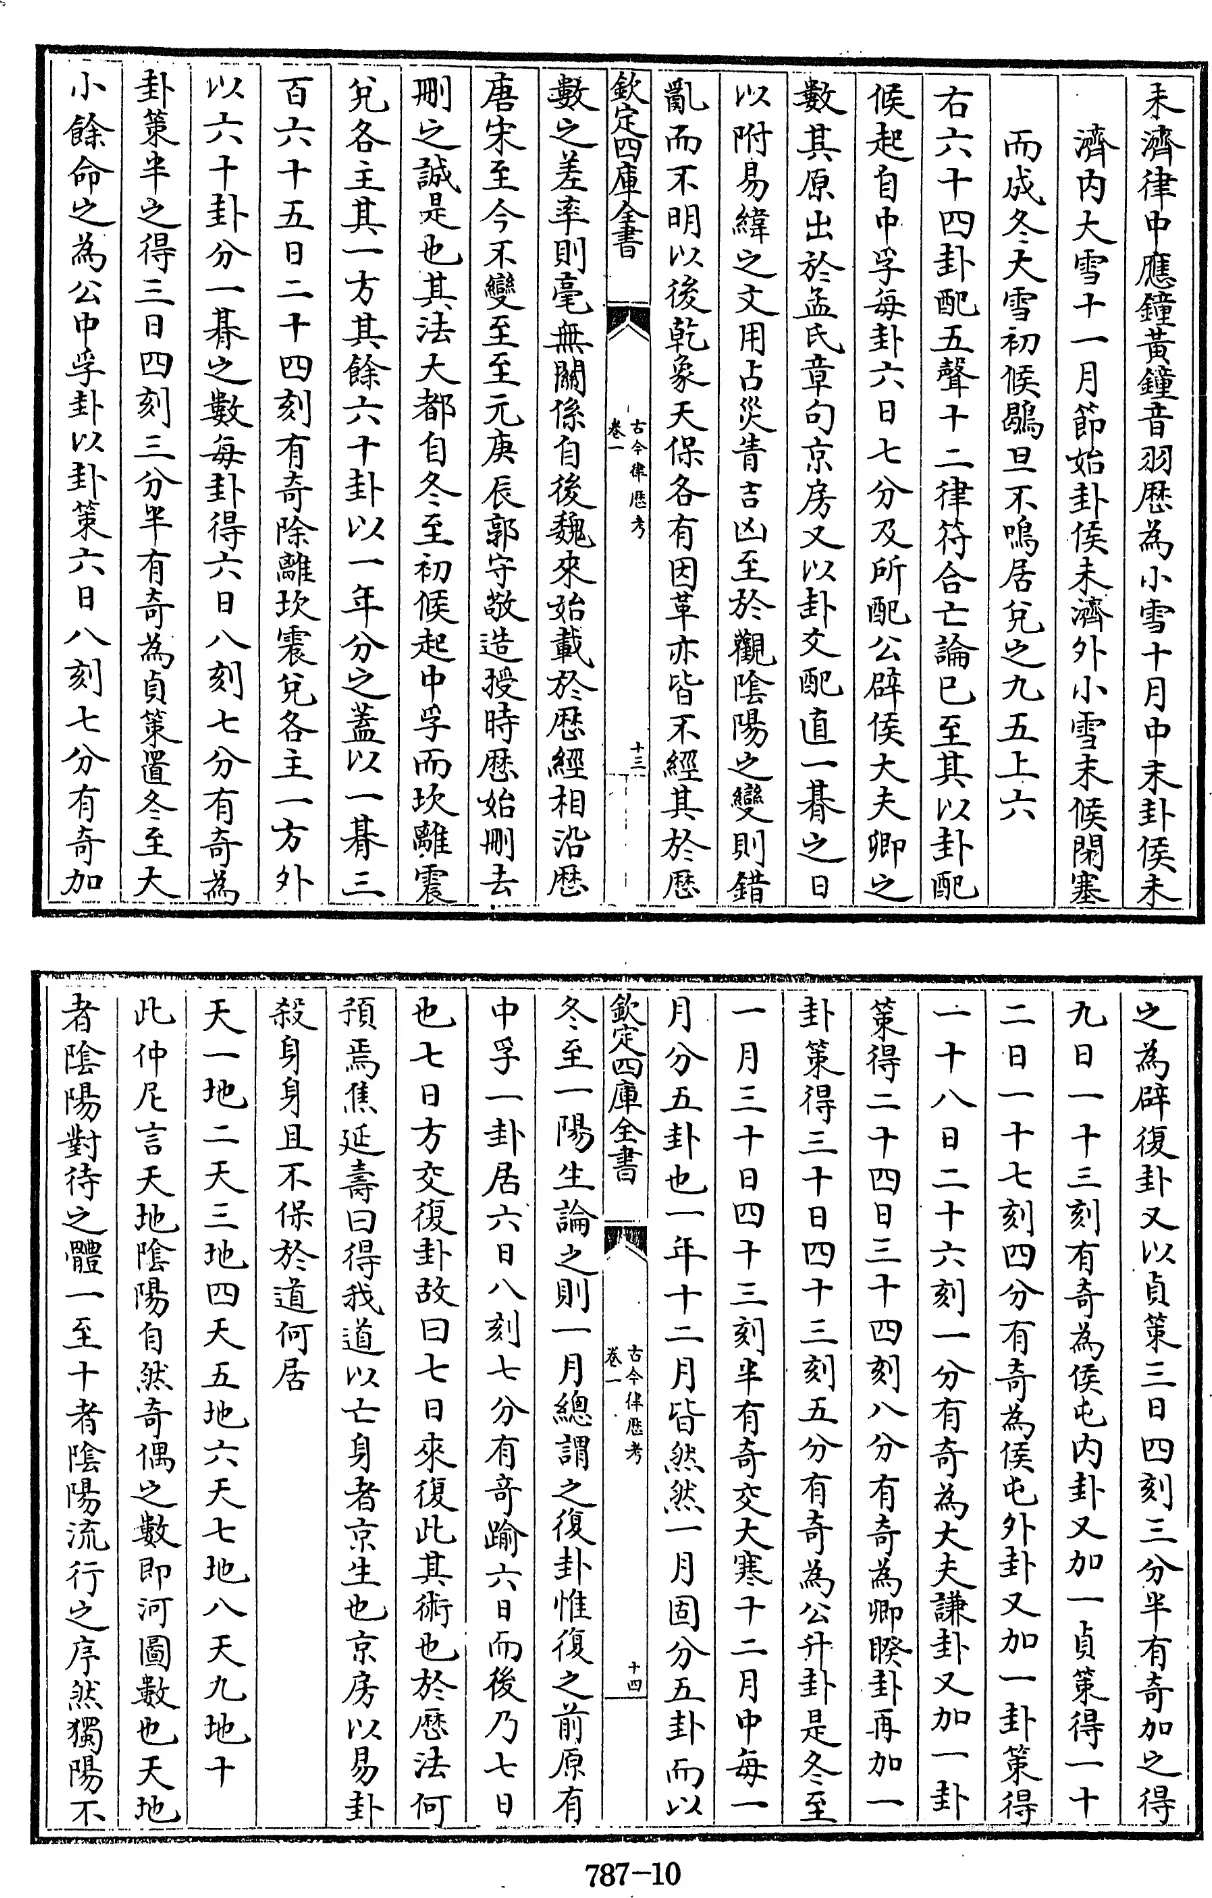 未濟律中應鐘黃鐘音羽歴為小雪十月中末卦侯未
濟内大雪十一月節始卦侯未濟外小雪末候閉塞
而成冬大雪初候鶡旦不鳴居兊之九五上六
右六十四卦配五聲十二律符合亡論已至其以卦配
候起自中孚每卦六日七分及所配公辟侯大夫卿之
數其原出於孟氏章句京房又以卦爻配直一朞之日
以附易緯之文用占災眚吉凶至於觀陰陽之變則錯
亂而不明以後乾象天保各有因革亦皆不經其於歴
欽定四庫全書
古今律歴考
卷一
十三
數之差率則毫無關係自後魏來始載於歴經相沿歴
唐宋至今不變至至元庚辰郭守敬造授時歴始刪去
刪之誠是也其法大都自冬至初候起中孚而坎離震
兊各主其一方其餘六十卦以一年分之蓋以一朞三
百六十五日二十四刻有奇除離坎震兊各主一方外
以六十卦分一朞之數每卦得六日八刻七分有奇為
卦策半之得三日四刻三分半有奇為貞策置冬至大
小餘命之為公中孚卦以卦策六日八刻七分有奇加
之為辟復卦又以貞策三日四刻三分半有奇加之得
九日一十三刻有奇為侯屯内卦又加一貞策得一十
二日一十七刻四分有奇為侯屯外卦又加一卦策得
一十八日二十六刻一分有奇為大夫謙卦又加一卦
策得二十四日三十四刻八分有奇為卿睽卦再加一
卦策得三十日四十三刻五分有奇為公升卦是冬至
一月三十日四十三刻半有奇交大寒十二月中每一
月分五卦也一年十二月皆然然一月固分五卦而以
欽定四庫全書
古今律歴考
卷一
十四
冬至一陽生論之則一月總謂之復卦惟復之前原有
中孚一卦居六日八刻七分有奇踰六日而後乃七日
也七日方交復卦故曰七日來復此其術也於歴法何
預焉焦延壽曰得我道以亡身者京生也京房以易卦
殺身身且不保於道何居
天一地二天三地四天五地六天七地八天九地十
此仲尼言天地陰陽自然奇偶之數即河圖數也天地
者陰陽對待之體一至十者陰陽流行之序然獨陽不
787-10